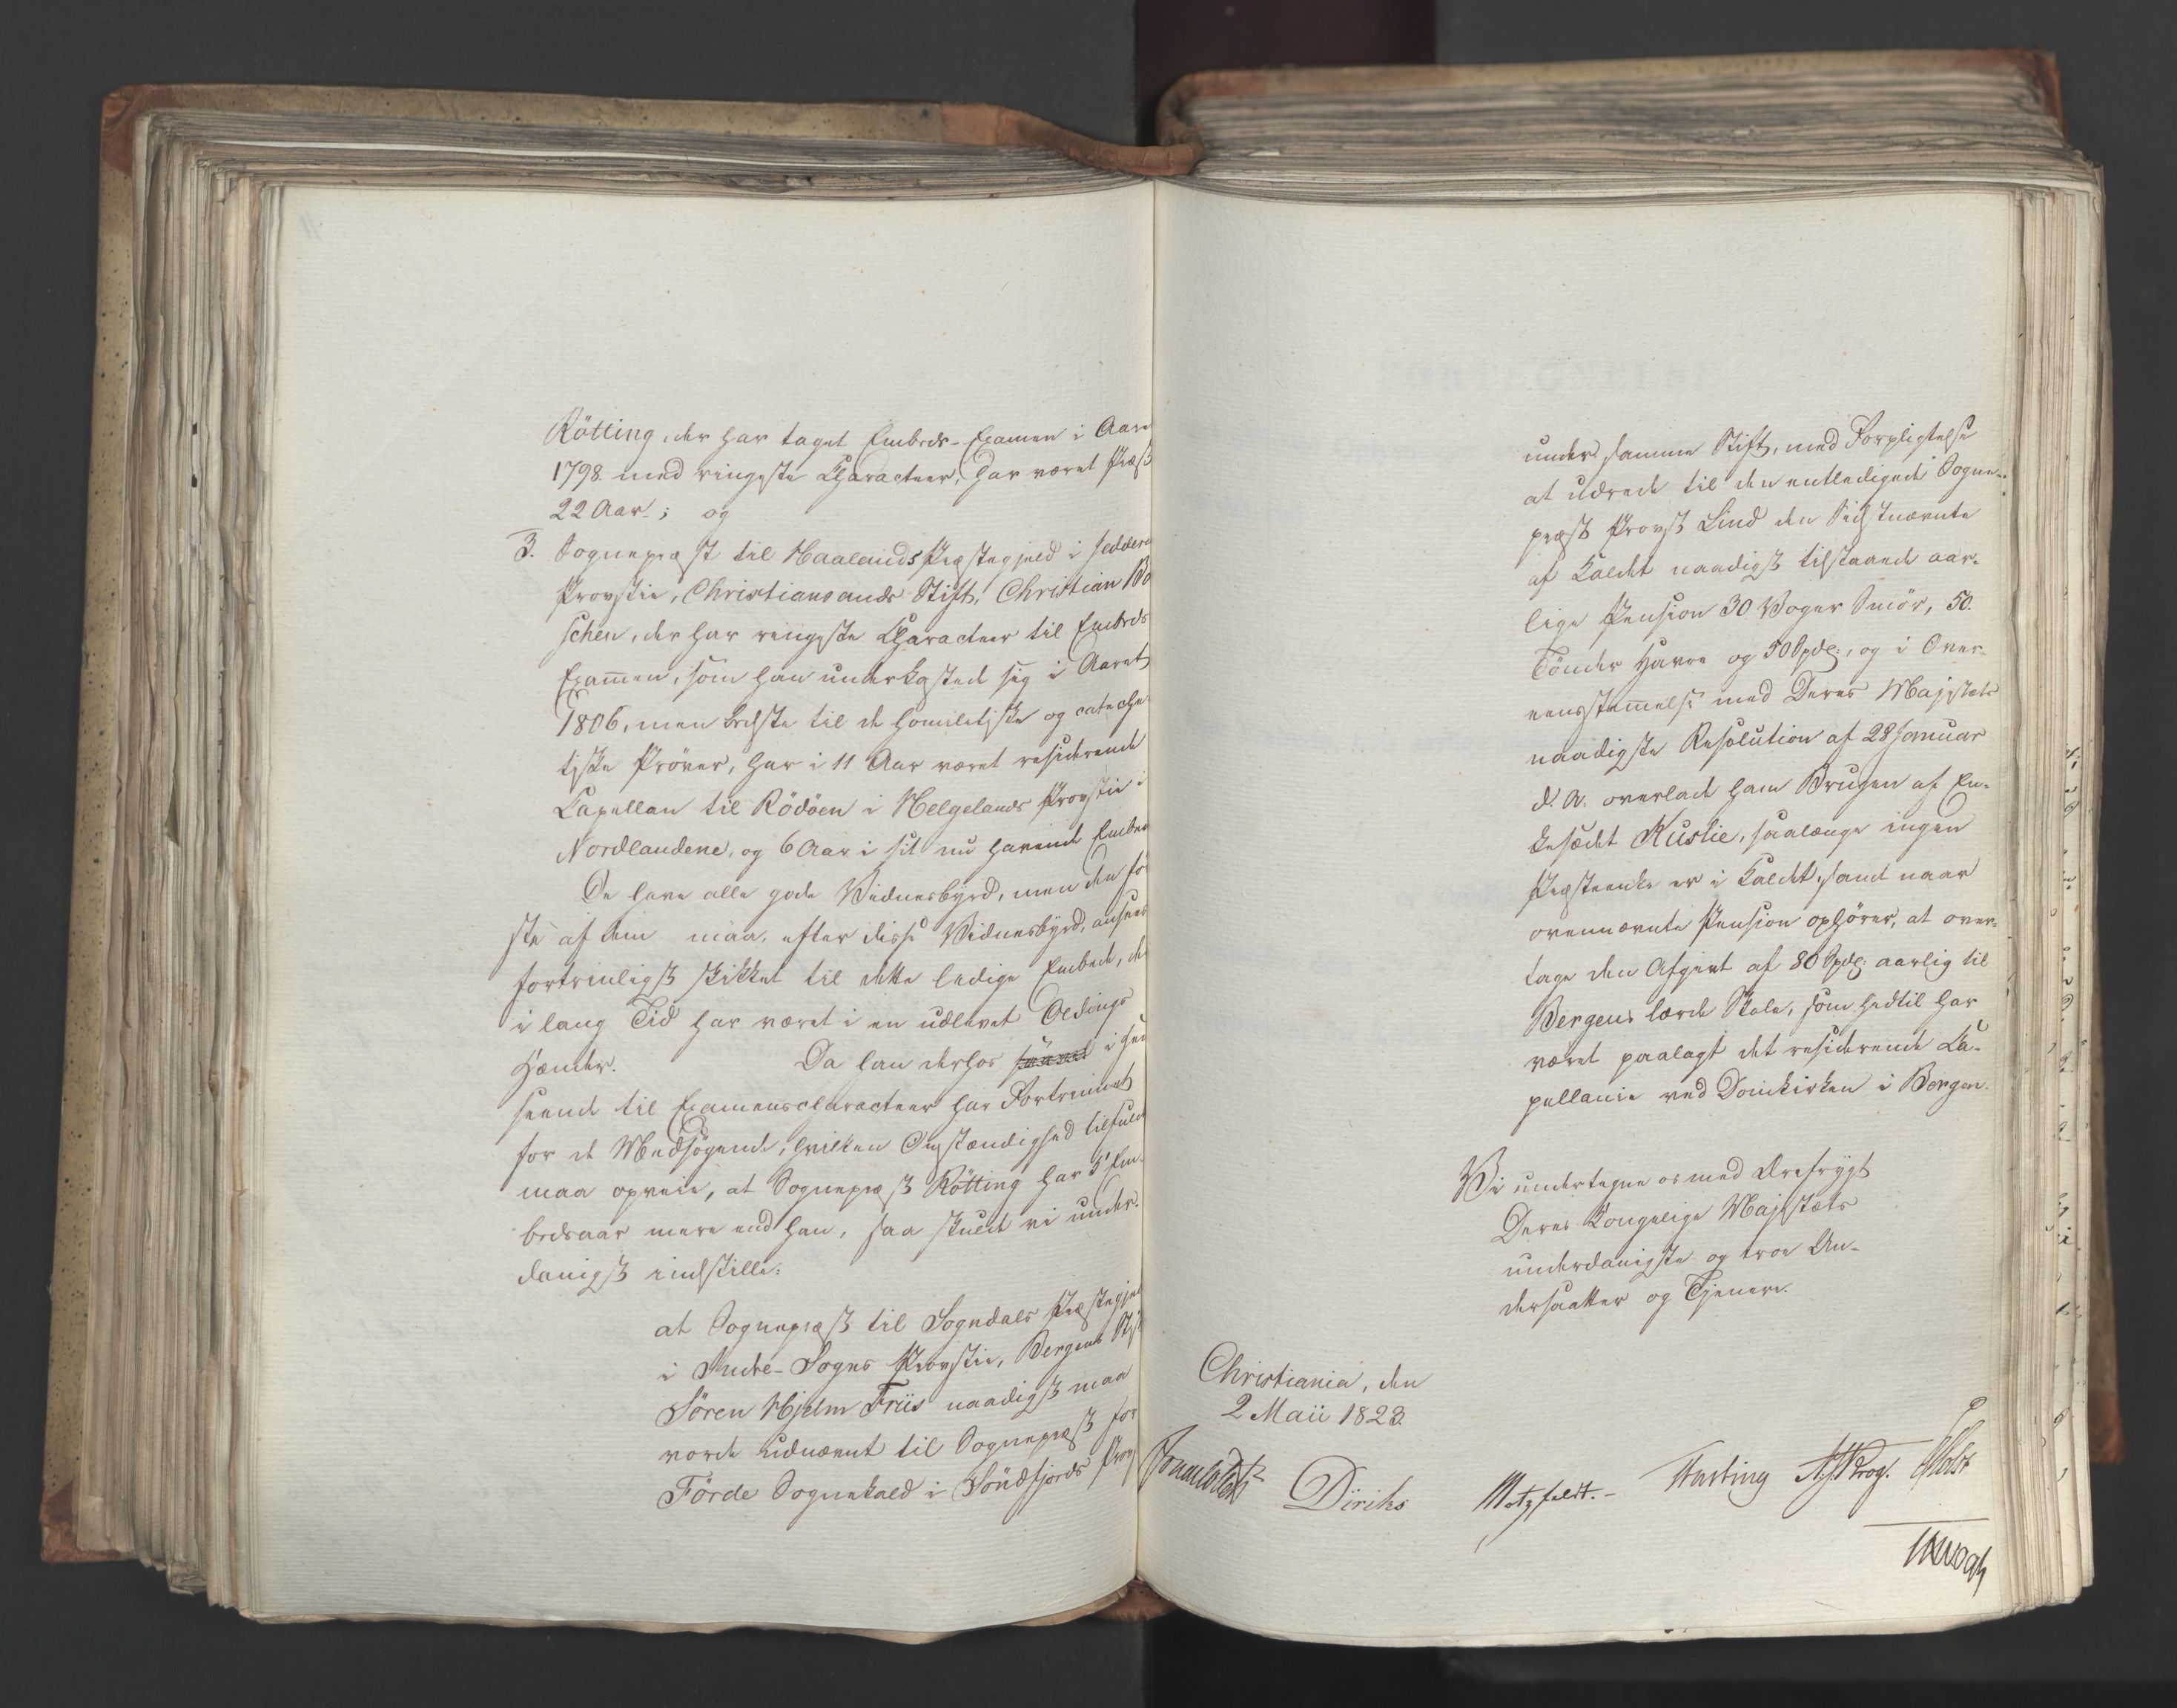 Rötting, der har taget Embeds-Examen i Aare
1798 med ringeste Characteer, har været Præst
22 Aar; og
3. Sognepræst til Haalands Præstegjeld i Jeddere
Provstie, Christiansands Stift, Christian Bo
schen, der har ringeste Characteer til Embeds
Examen, som han underkastede sig i Aaret
1806, men bedste til de homiletiske og cateche
tiske Prøver, har i 11 Aar været residerende
Capellan til Rödöen i Helgelands Provstie i
Nordlandene, og 6 Aar i sit nu havende Embed
De have alle gode Vidnesbyrd, men den før
ste af dem maa, efter disse Vidnesbyrd, ansees
fortrinligst skikket til dette ledige Embede, der
i lang Tid har været i en udlevet Oldings
Hænder. Da han derhos i Hen
seende til Examenscharacteer har Fortrinnet
for de Medsøgende, hvilken Omstændighed tilfulde
maa opveie, at Sognepræst Rötting har 5 Em-
bedsaar mere end han, saa skulde vi under-
danigst indstille:
at Sognepræst til Sogndals Præstegjel
i Indre-Sogns Provstie, Bergens Stif
Sören Hjelm Friis naadigst maa
vorde udnævnt til Sognepræst for
Förde Sognekald i Söndfjords Prov
under samme Stift, med Forpligtelse
at udrede til den entledigede Sogne-
præst Provst Lind den Sidstnævnte
af Kaldet naadigst tilstaaede aar-
lige Pension 30 Voger Smör, 50
Tönder Havre og 50 Spdlr, og i Over-
eensstemmelse med Deres Majestæts
naadigste Resolution af 28 Januar
d. A. overlade ham Brugen af En-
kesædet Kuslie, saalænge ingen
Præsteenke er i Kaldet, samt naar
ovennævnte Pension ophører, at over-
tage den Afgivt af 80 Spdlr aarlig til
Bergens lærde Skole, som hidtil har
været paalagt det residerende Ca-
pellanie ved Domkirken i Bergen.
Vi undertegne os med Ærefrygt
Deres Kongelige Majestæts
underdanigste og troe Un-
dersaatter og Tjenere.
Christiania, den
2 Maii 1823.
Sommerhielm Diriks Motzfeldt. Fasting Krog. Holst